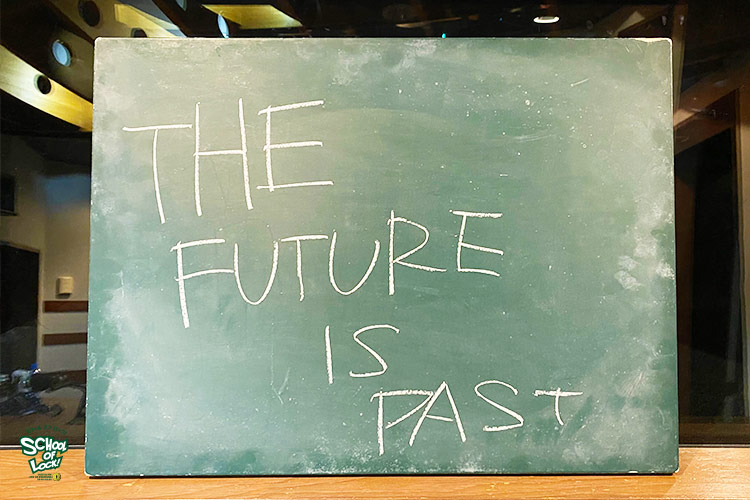 THE
FUTURE
IS
PAST
SCHOOL
OF
LOCK!